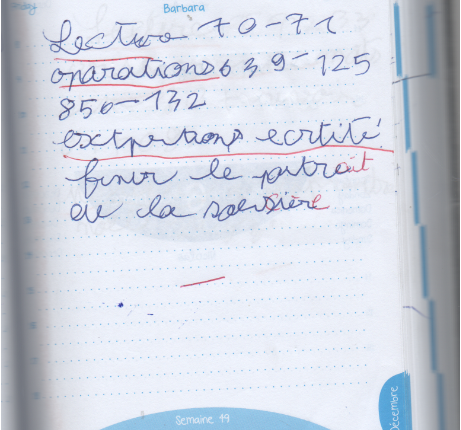 Barbara
Lecture 70-71
oparations 639-125
850-132
exctpretions ecrtité
finir le potreait
de la sorsière
Semaine 49
décembre